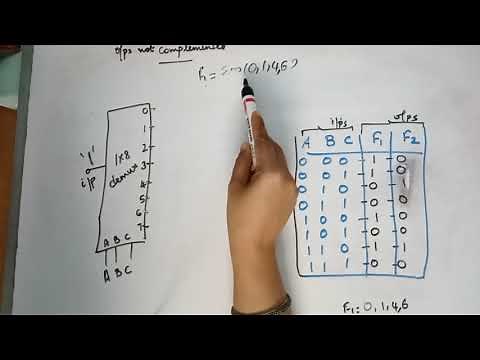 o/ps not complemented
F₁ = Σm(0,1,4,6)
0
1
2
3
4
5
6
7
'1'
i/p
1×8
demux
A B C
A B C
i/ps o/ps
A B C F₁ F₂
0 0 0 1 0
0 0 1 1 0
0 1 0 0 1
0 1 1 0 0
1 0 0 1 0
1 0 1 0
1 1 0 1 0
1 1 1 0 0
F₁ = 0, 1, 4, 6